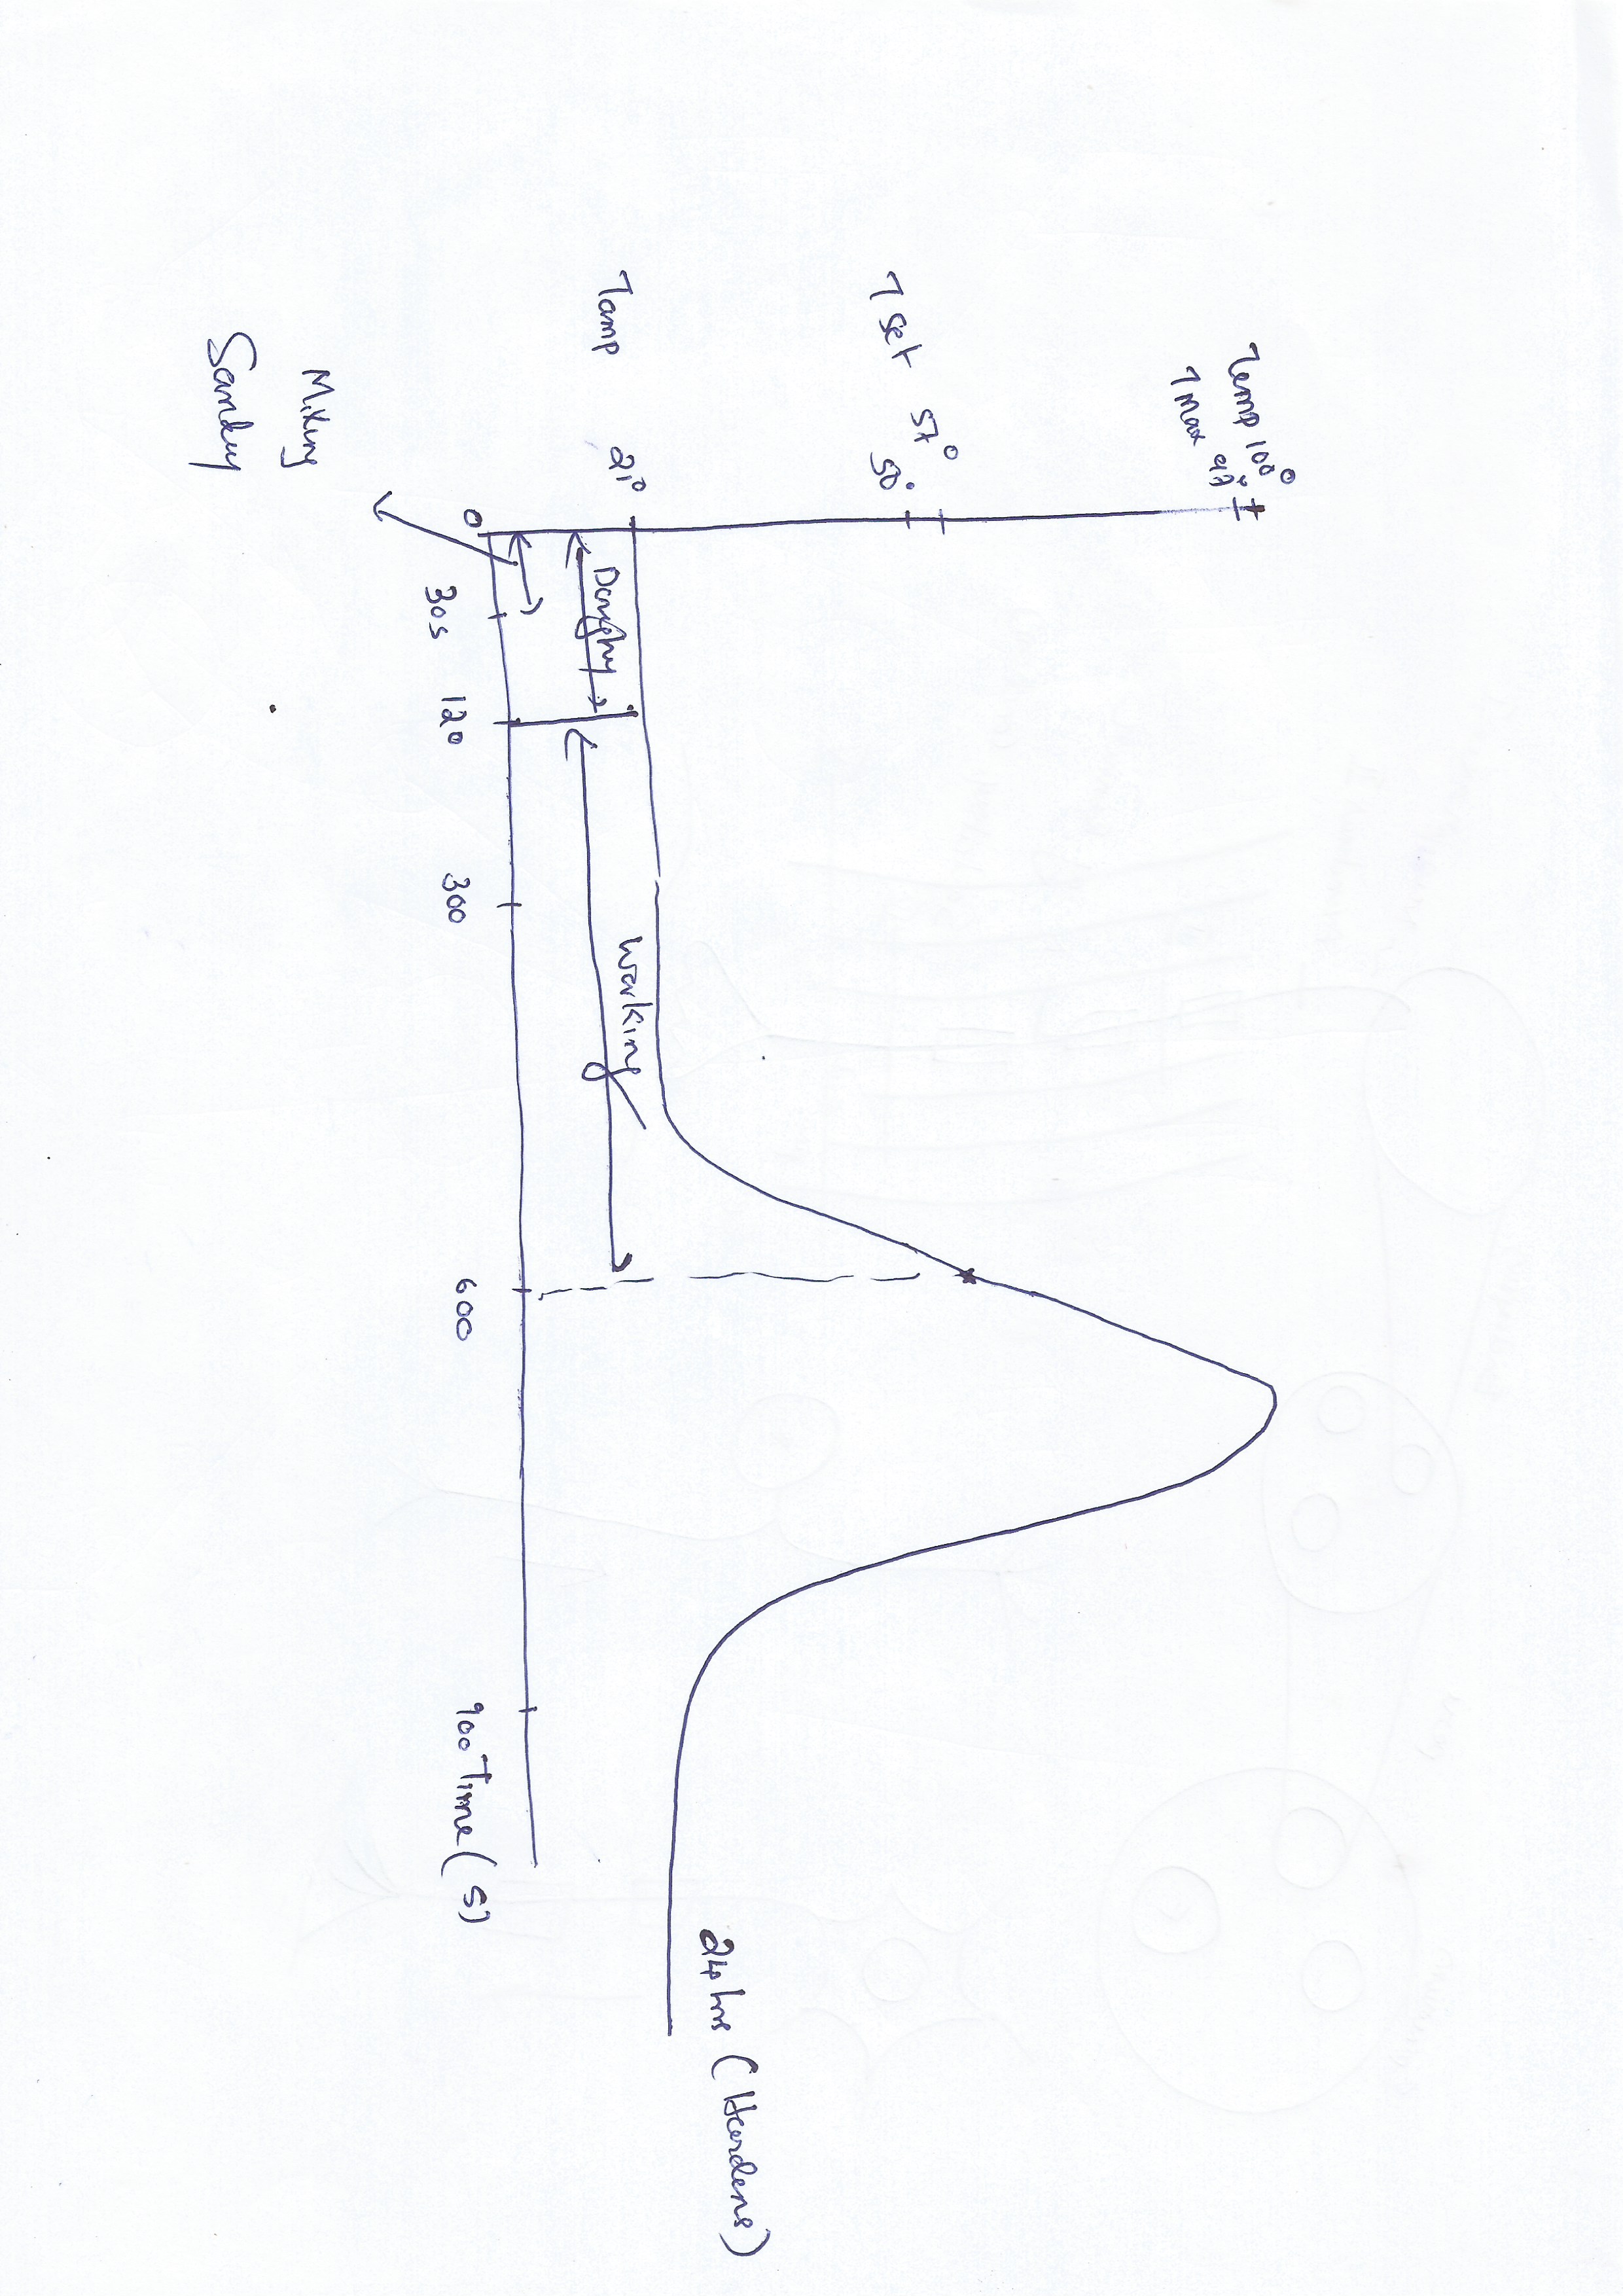 Temp 100°
T Max 97°
T set 57°
50°
Tamp 21°
Doughy
Working
24 hrs (Hardens)
0
30s
120
300
600
900 Time (s)
Mixing
Sandy